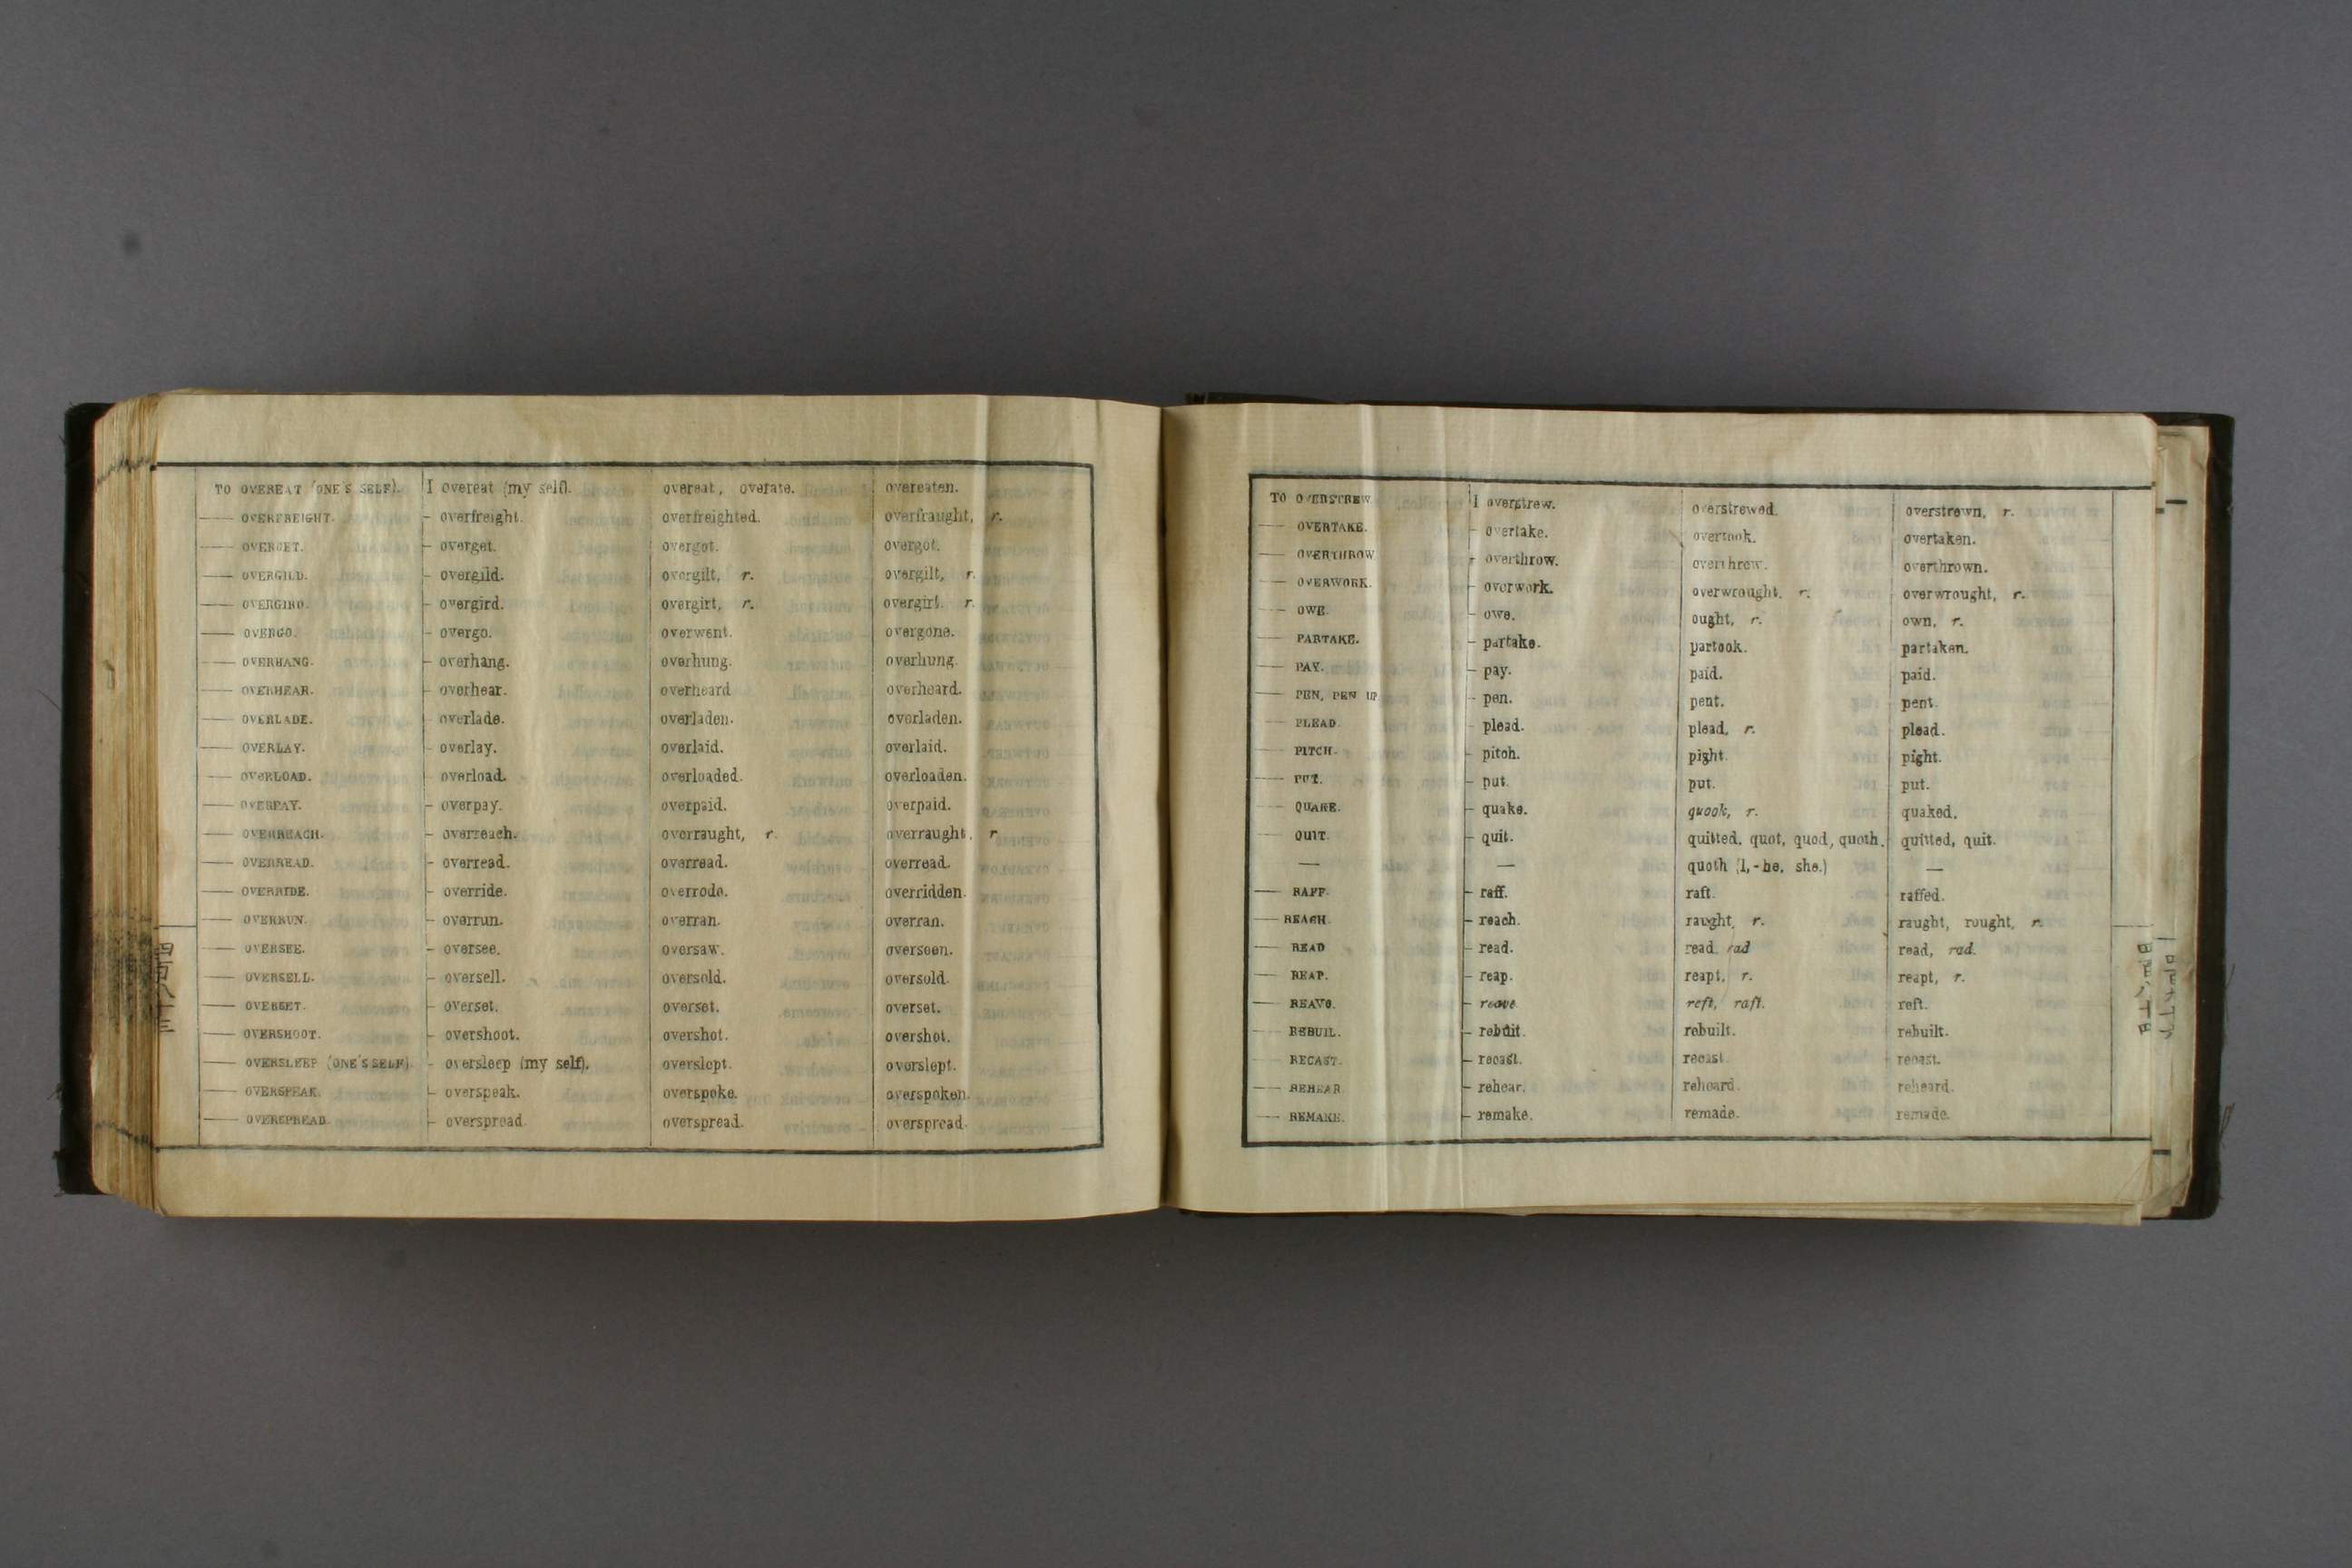 TO OVEREAT (ONE'S SELF). I overeat (my self). overeat, overate. overeaten.
— OVERFREIGHT. - overfreight. overfreighted. overfraught, r.
— OVERGET. - overget. overgot. overgot.
— OVERGILD. - overgild. overgilt, r. overgilt, r.
— OVERGIRD. - overgird. overgirt, r. overgirt. r.
— OVERGO. - overgo. overwent. overgone.
— OVERHANG. - overhang. overhung. overhung.
— OVERHEAR. - overhear. overheard overheard.
— OVERLADE. - overlade. overladen. overladen.
— OVERLAY. - overlay. overlaid. overlaid.
— OVERLOAD. - overload. overloaded. overloaden.
— OVERPAY. - overpay. overpaid. overpaid.
— OVERREACH. - overreach. overraught, r. overraught, r
— OVERREAD. - overread. overread. overread.
— OVERRIDE. - override. overrode. overridden.
— OVERRUN. - overrun. overran. overran.
— OVERSEE. - oversee. oversaw. overseen.
— OVERSELL. - oversell. oversold. oversold.
— OVERSET. - overset. overset. overset.
— OVERSHOOT. - overshoot. overshot. overshot.
— OVERSLEEP (ONE'S SELF). - oversleep (my self). overslept. overslept.
— OVERSPEAK. - overspeak. overspoke. overspoken.
— OVERSPREAD. - overspread overspread. overspread.
TO OVERSTREW I overstrew. overstrewed. overstrewn, r.
— OVERTAKE. - overtake. overtook. overtaken.
— OVERTHROW - overthrow. overthrew. overthrown.
— OVERWORK. - overwork. overwrought. r. overwrought, r.
— OWE. - owe. ought, r. own, r.
— PARTAKE. - partake. partook. partaken.
— PAY. - pay. paid. paid.
— PEN, PEN UP - pen. pent. pent.
— PLEAD. - plead. plead, r. plead.
— PITCH. - pitch. pight. pight.
— PUT. - put. put. put.
— QUAKE. - quake. quook, r. quaked.
— QUIT. - quit. quitted, quot, quod, quoth. quitted, quit.
— — quoth (I, - he, she.) —
— RAFF. - raff. raft. raffed.
— REACH. - reach. raught, r. raught, rought, r.
— READ - read. read, rad read, rad.
— REAP. - reap. reapt, r. reapt, r.
— REAVE. - reave reft, raft. reft.
— REBUIL. - rebuit. rebuilt. rebuilt.
— RECAST. - recast. recast. recast.
— REHEAR - rehear. reheard. reheard.
— REMAKE. - remake. remade. remade.